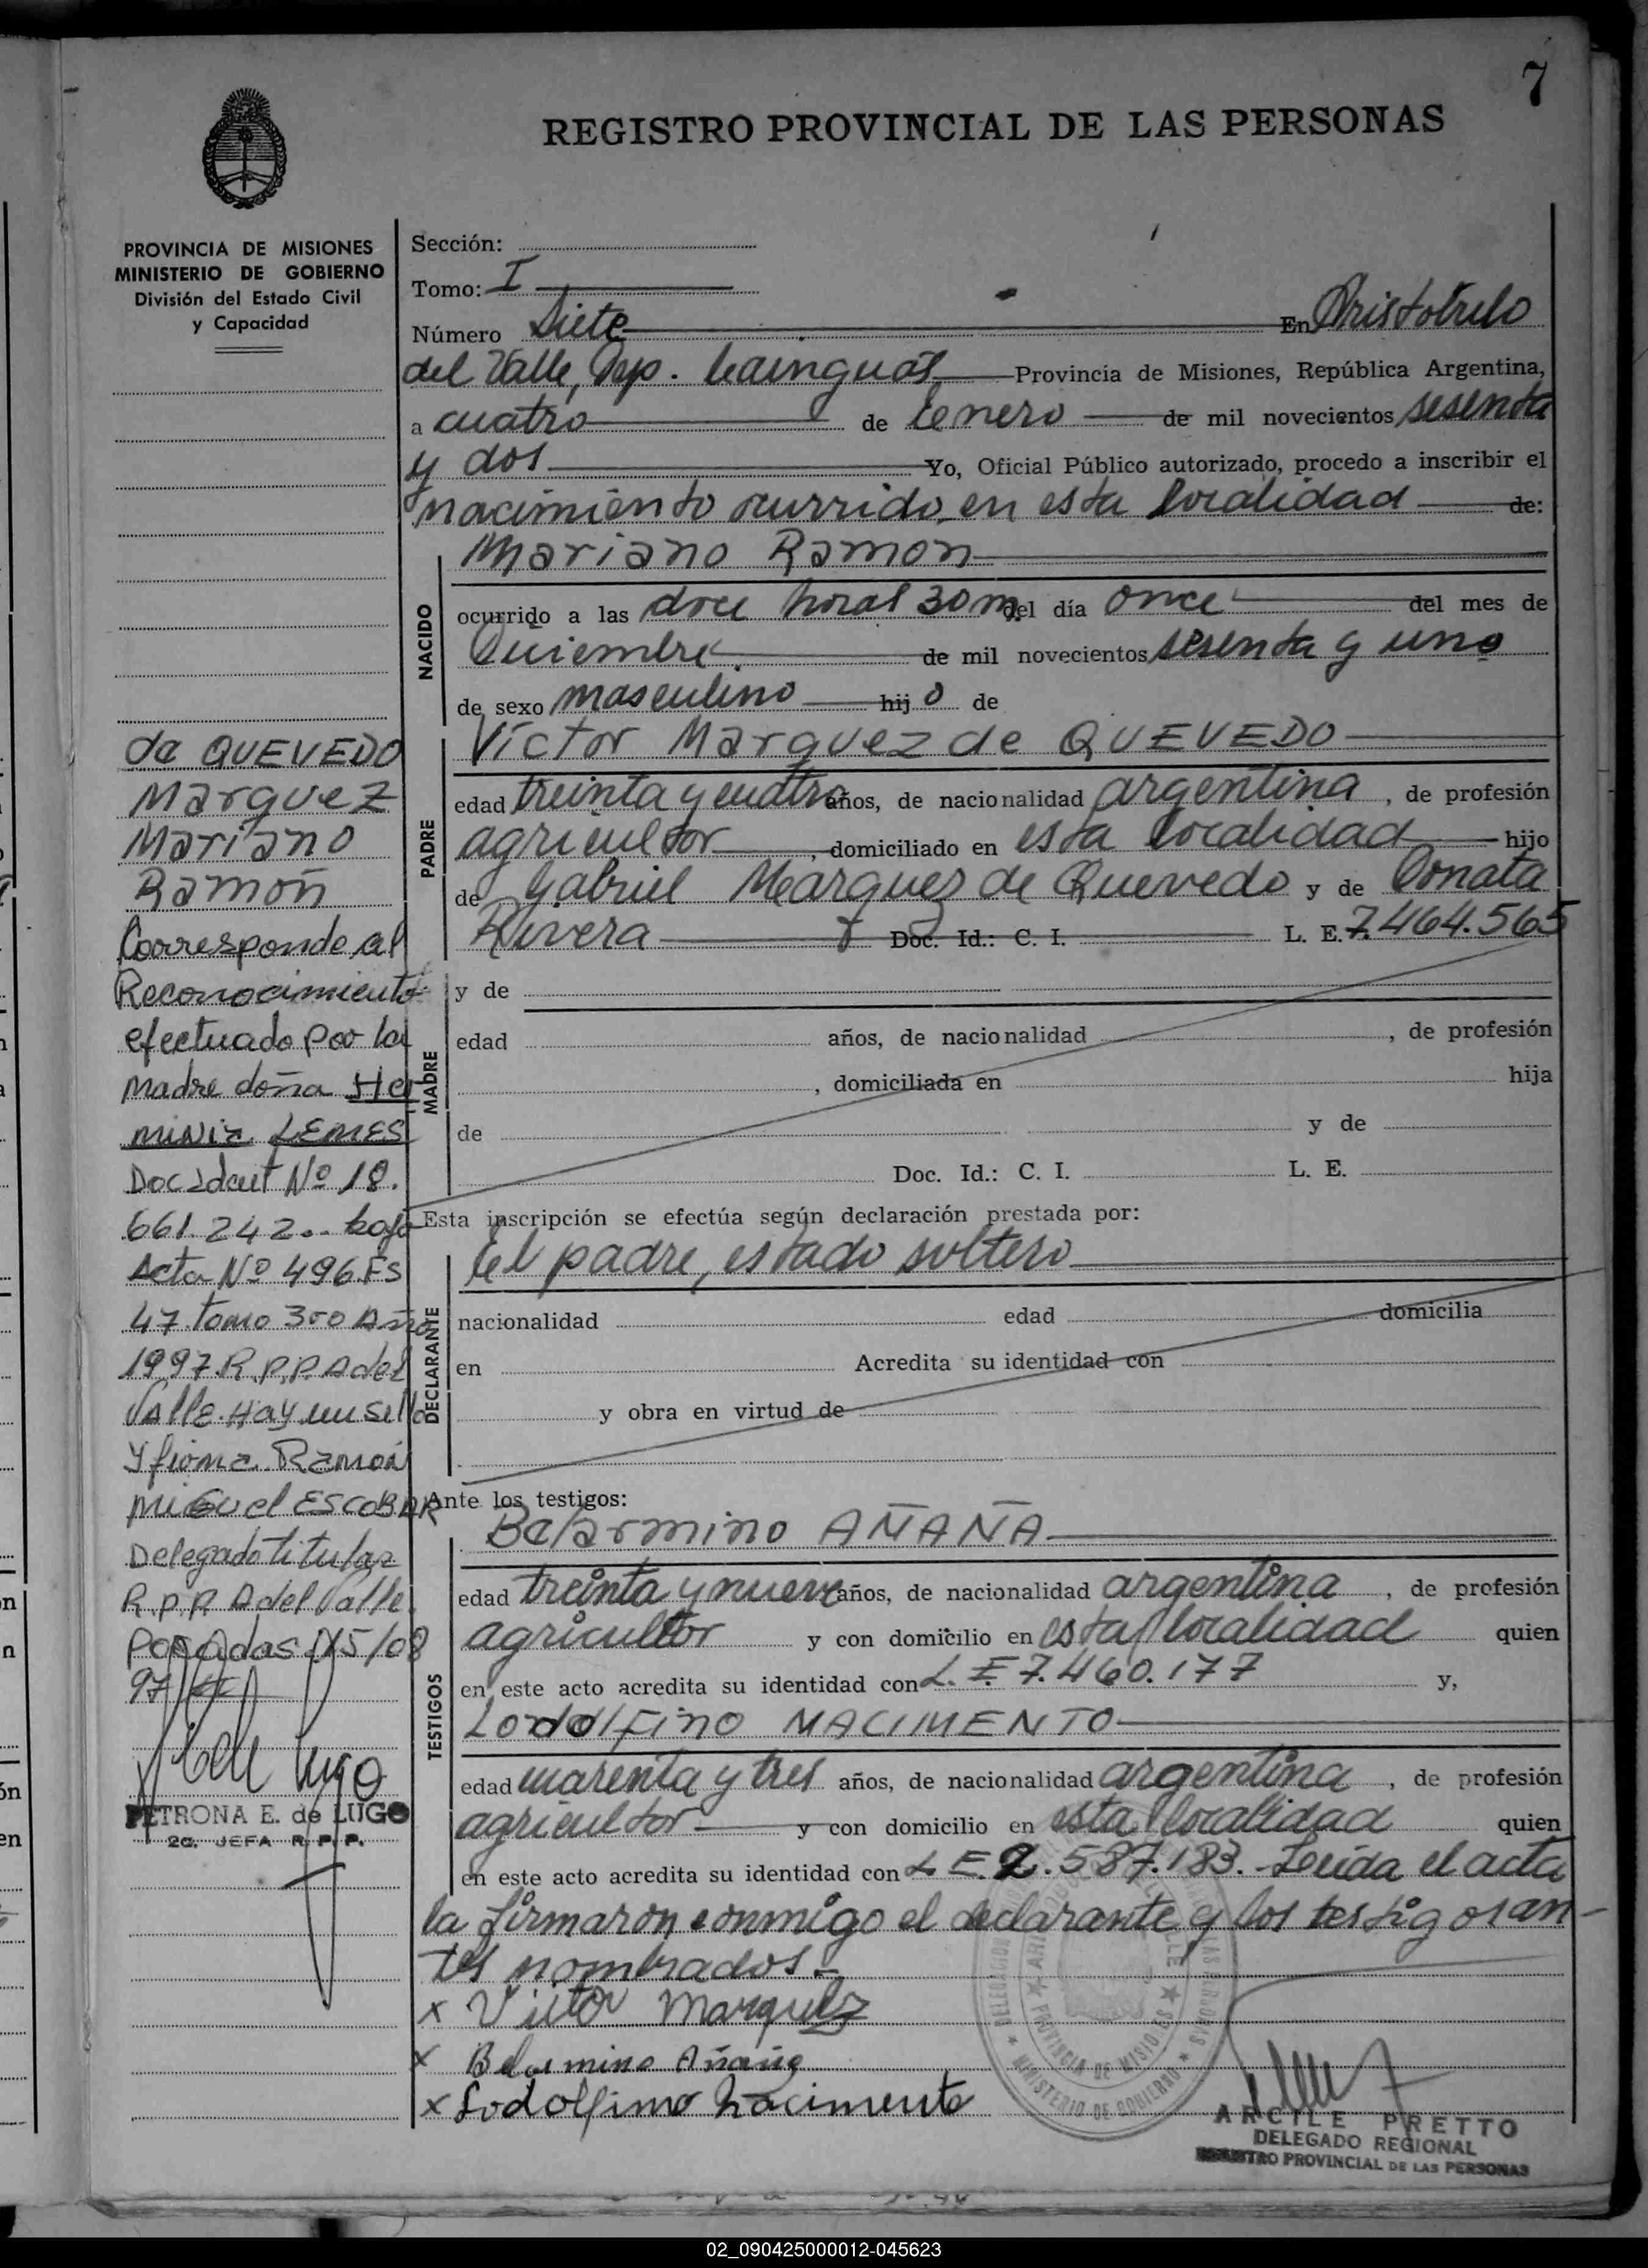 7
REGISTRO PROVINCIAL DE LAS PERSONAS
PROVINCIA DE MISIONES
MINISTERIO DE GOBIERNO
División del Estado Civil
y Capacidad
Sección:
Tomo: I
Número Siete En Aristobulo
del Valle, Dep. Cainguás Provincia de Misiones, República Argentina,
a cuatro de Enero de mil novecientos sesenta
y dos Yo, Oficial Público autorizado, procedo a inscribir el
nacimiento ocurrido en esta localidad de:
NACIDO
Mariano Ramon
ocurrido a las doce horas 30 m. del día once del mes de
Diciembre de mil novecientos sesenta y uno
de sexo masculino hijo de
PADRE
Víctor Marquez de QUEVEDO
edad treinta y cuatro años, de nacionalidad argentina, de profesión
agricultor, domiciliado en esta localidad hijo
de Gabriel Marquez de Quevedo y de Donata
Rivera Doc. Id.: C. I. L. E. 7.464.565
MADRE
y de
edad años, de nacionalidad , de profesión
, domiciliada en hija
de y de
Doc. Id.: C. I. L. E.
Esta inscripción se efectúa según declaración prestada por:
DECLARANTE
El padre, estado soltero
nacionalidad edad domicilia
en Acredita su identidad con
y obra en virtud de
Ante los testigos:
TESTIGOS
Belarmino AÑAÑA
edad treinta y nueve años, de nacionalidad argentina, de profesión
agricultor y con domicilio en esta localidad quien
en este acto acredita su identidad con L. E. 7.460.177 y,
Lodolfino NACIMENTO
edad cuarenta y tres años, de nacionalidad argentina, de profesión
agricultor y con domicilio en esta localidad quien
en este acto acredita su identidad con L. E. 2.587.183.- Leida el acta
la firmaron conmigo el declarante y los testigos an-
tes nombrados.-
x Victor Marquez
x Belarmino Añaña
x Lodolfimo Nacimento
de QUEVEDO
Marquez
Mariano
Ramón
Corresponde al
Reconocimiento
efectuado por la
Madre doña Her
miniz LEMES
Doc Ident Nº 18.
661.242.- bajo
Acta Nº 496 Fs
47 tomo 300 Año
1997 R.P.P. A del
Valle. Hay un sello
y firma Ramón
Miguel ESCOBAR
Delegado titular
R.P.P. A del Valle.
Posadas 15/08
97
Lugo
PETRONA E. de LUGO
2a. JEFA R. P. P.
PROVINCIA DE MISIONES
MINISTERIO DE GOBIERNO
ARCILE PRETTO
DELEGADO REGIONAL
REGISTRO PROVINCIAL DE LAS PERSONAS
02_090425000012-045623